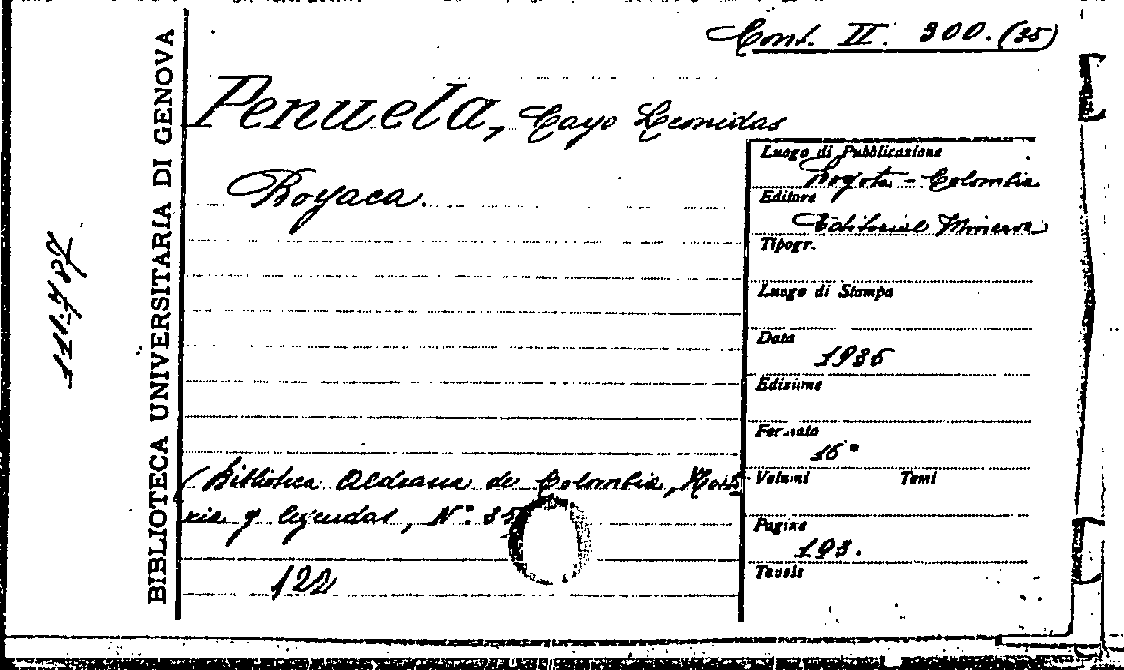 Cont. II. 300. (35)
Penuela, Cayo Leonidas
Boyaca.
(Biblioteca Aldeana de Colombia, Histo
ria y leyendas, N.° 35
122
BIBLIOTECA UNIVERSITARIA DI GENOVA
Luogo di Pubblicazione
Bogotà - Colombia
Editore
Editorial Minerva
Tipogr.
Luogo di Stampa
Data
1936
Edizione
Formato
16°
Volumi Tomi
Pagine
193.
Tavole